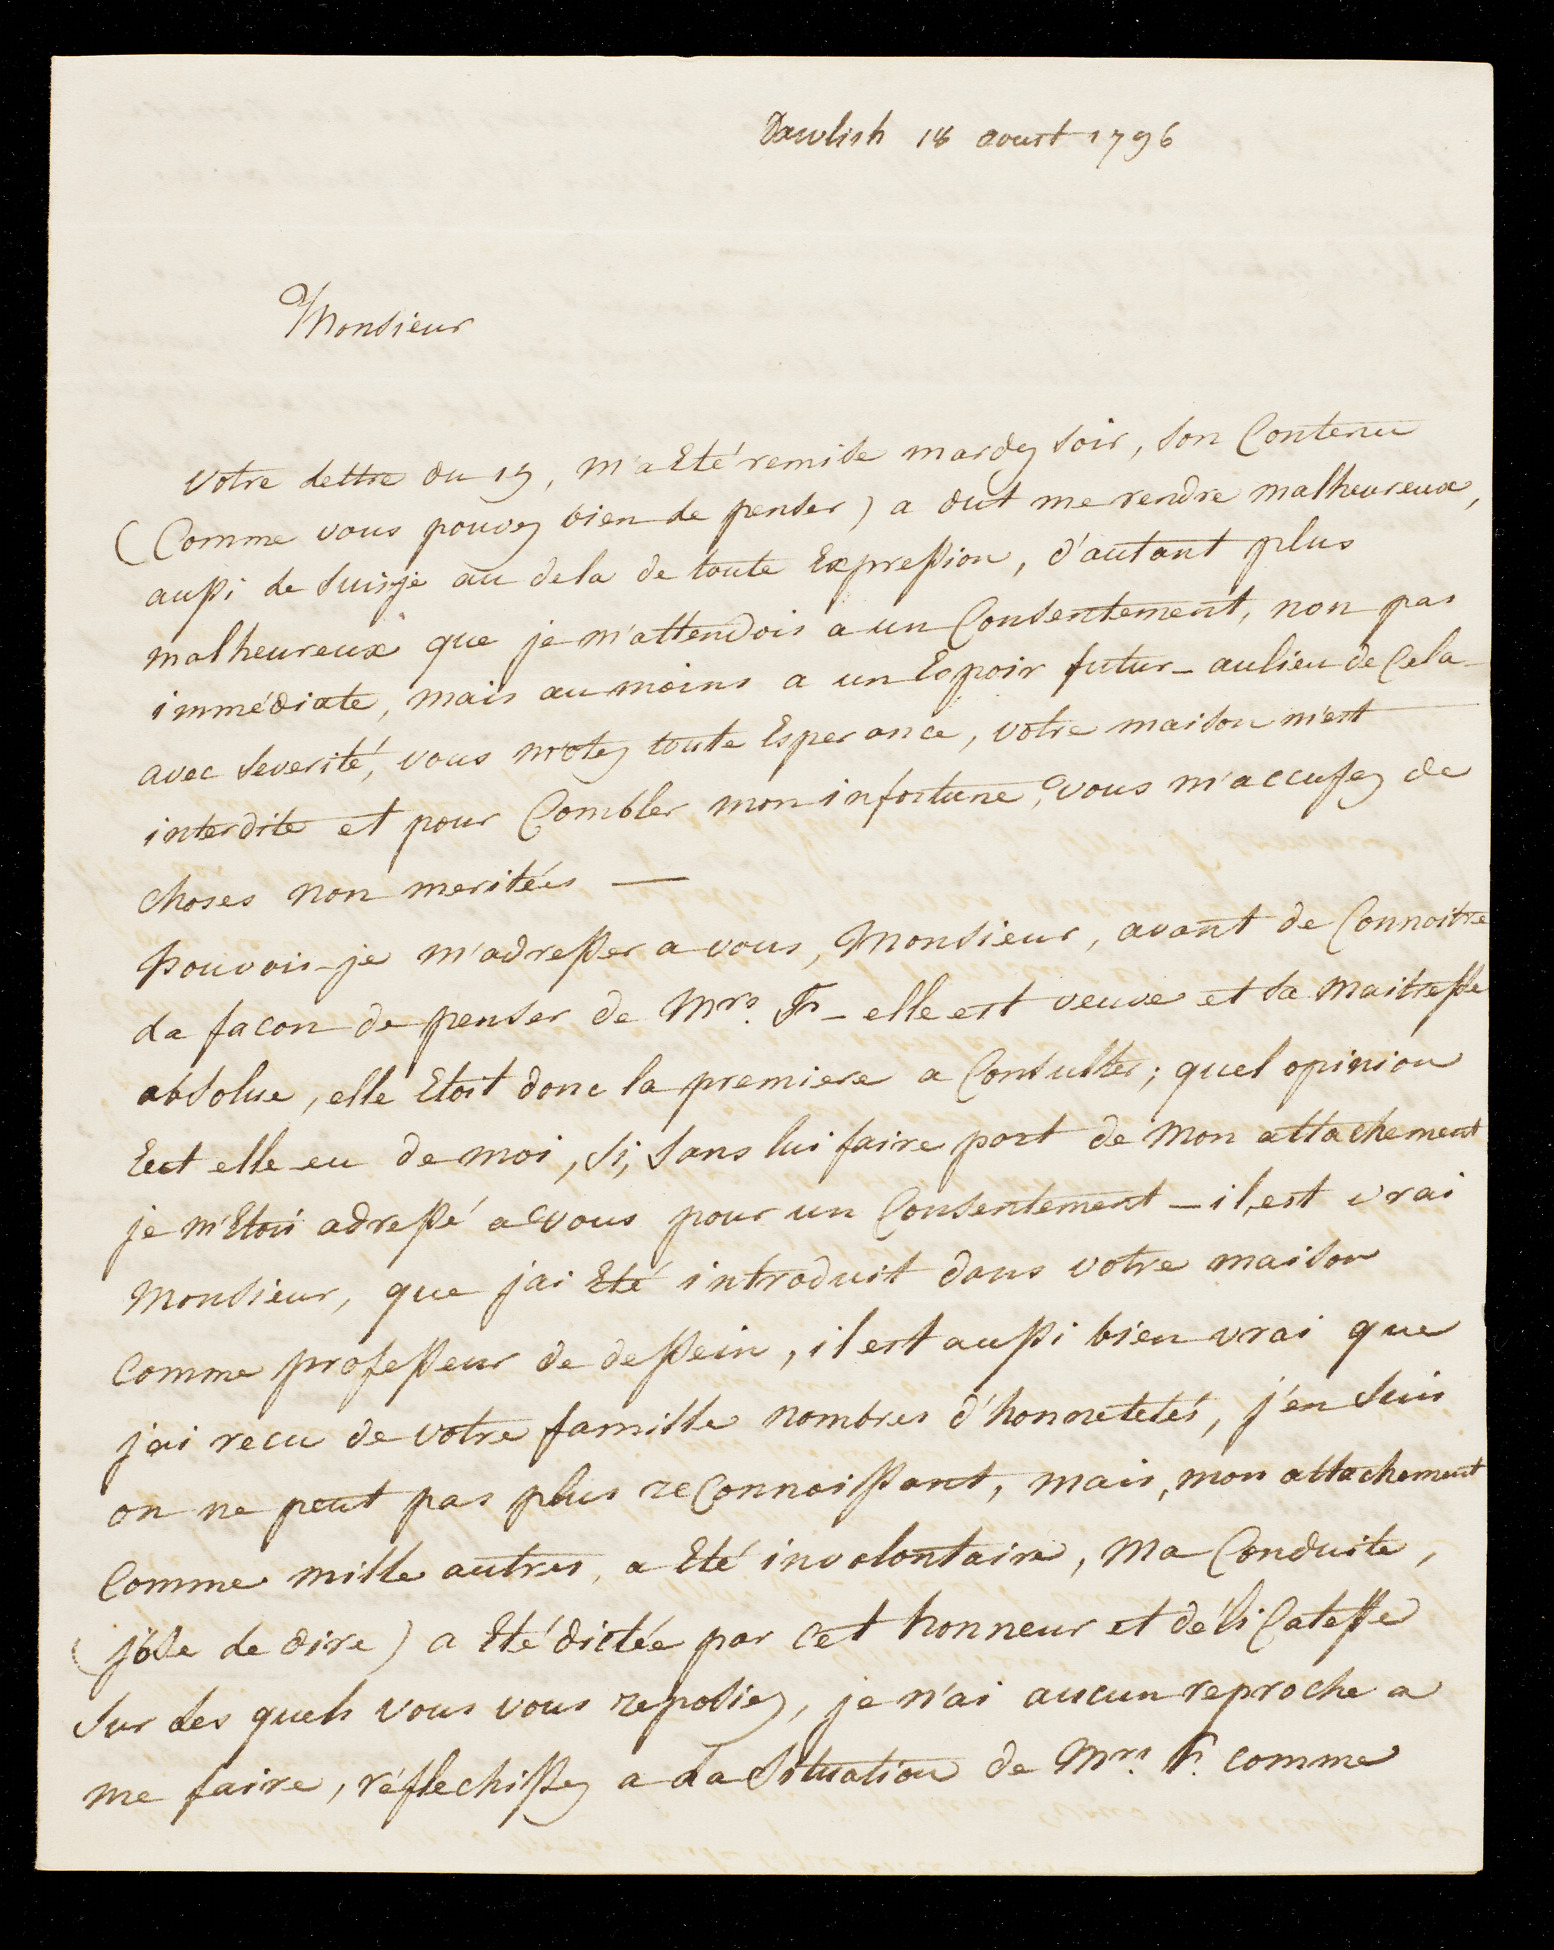 Dawlish 18 aoust 1796
Monsieur
votre lettre du 15, m'a Eté remise mardy soir, son Contenu
(Comme vous pouvez bien le penser) a dut me rendre malheureux,
aussi le suis-je au dela de toute Expression, d'autant plus
malheureux que je m'attendois a un Consentement, non pas
immédiate, mais au moins a un Espoir futur_ aulieu de Cela_
avec severité, vous m'otez toute Esperance, votre maison m'est
interdite et pour Combler mon infortune, vous m'accusez de
choses non meritées —
pouvois-je m'adresser a vous, Monsieur, avant de Connoitre
la facon de penser de Mrs. F_ elle est veuve et sa maitresse
absolue, elle Etoit donc la premiere a Consulter; quel opinion
Eut elle eu de moi, si, sans lui faire part de mon attachement
je m'Etois adressé a vous pour un Consentement — il est vrai
Monsieur, que j'ai Eté introduit dans votre maison
comme professeur de dessein, il est aussi bien vrai que
j'ai recu de votre famille nombres d'honnetetés, j'en suis
on ne peut pas plus reConnoissant, mais, mon attachement
Comme mille autres, a Eté involontaire, ma Conduite,
(j'ose le dire) a Eté dictée par cet honneur et déliCatesse
sur les quels vous vous reposiez, je n'ai aucun reproche a
me faire, réflechissez a la Situation de Mrs. F. comme